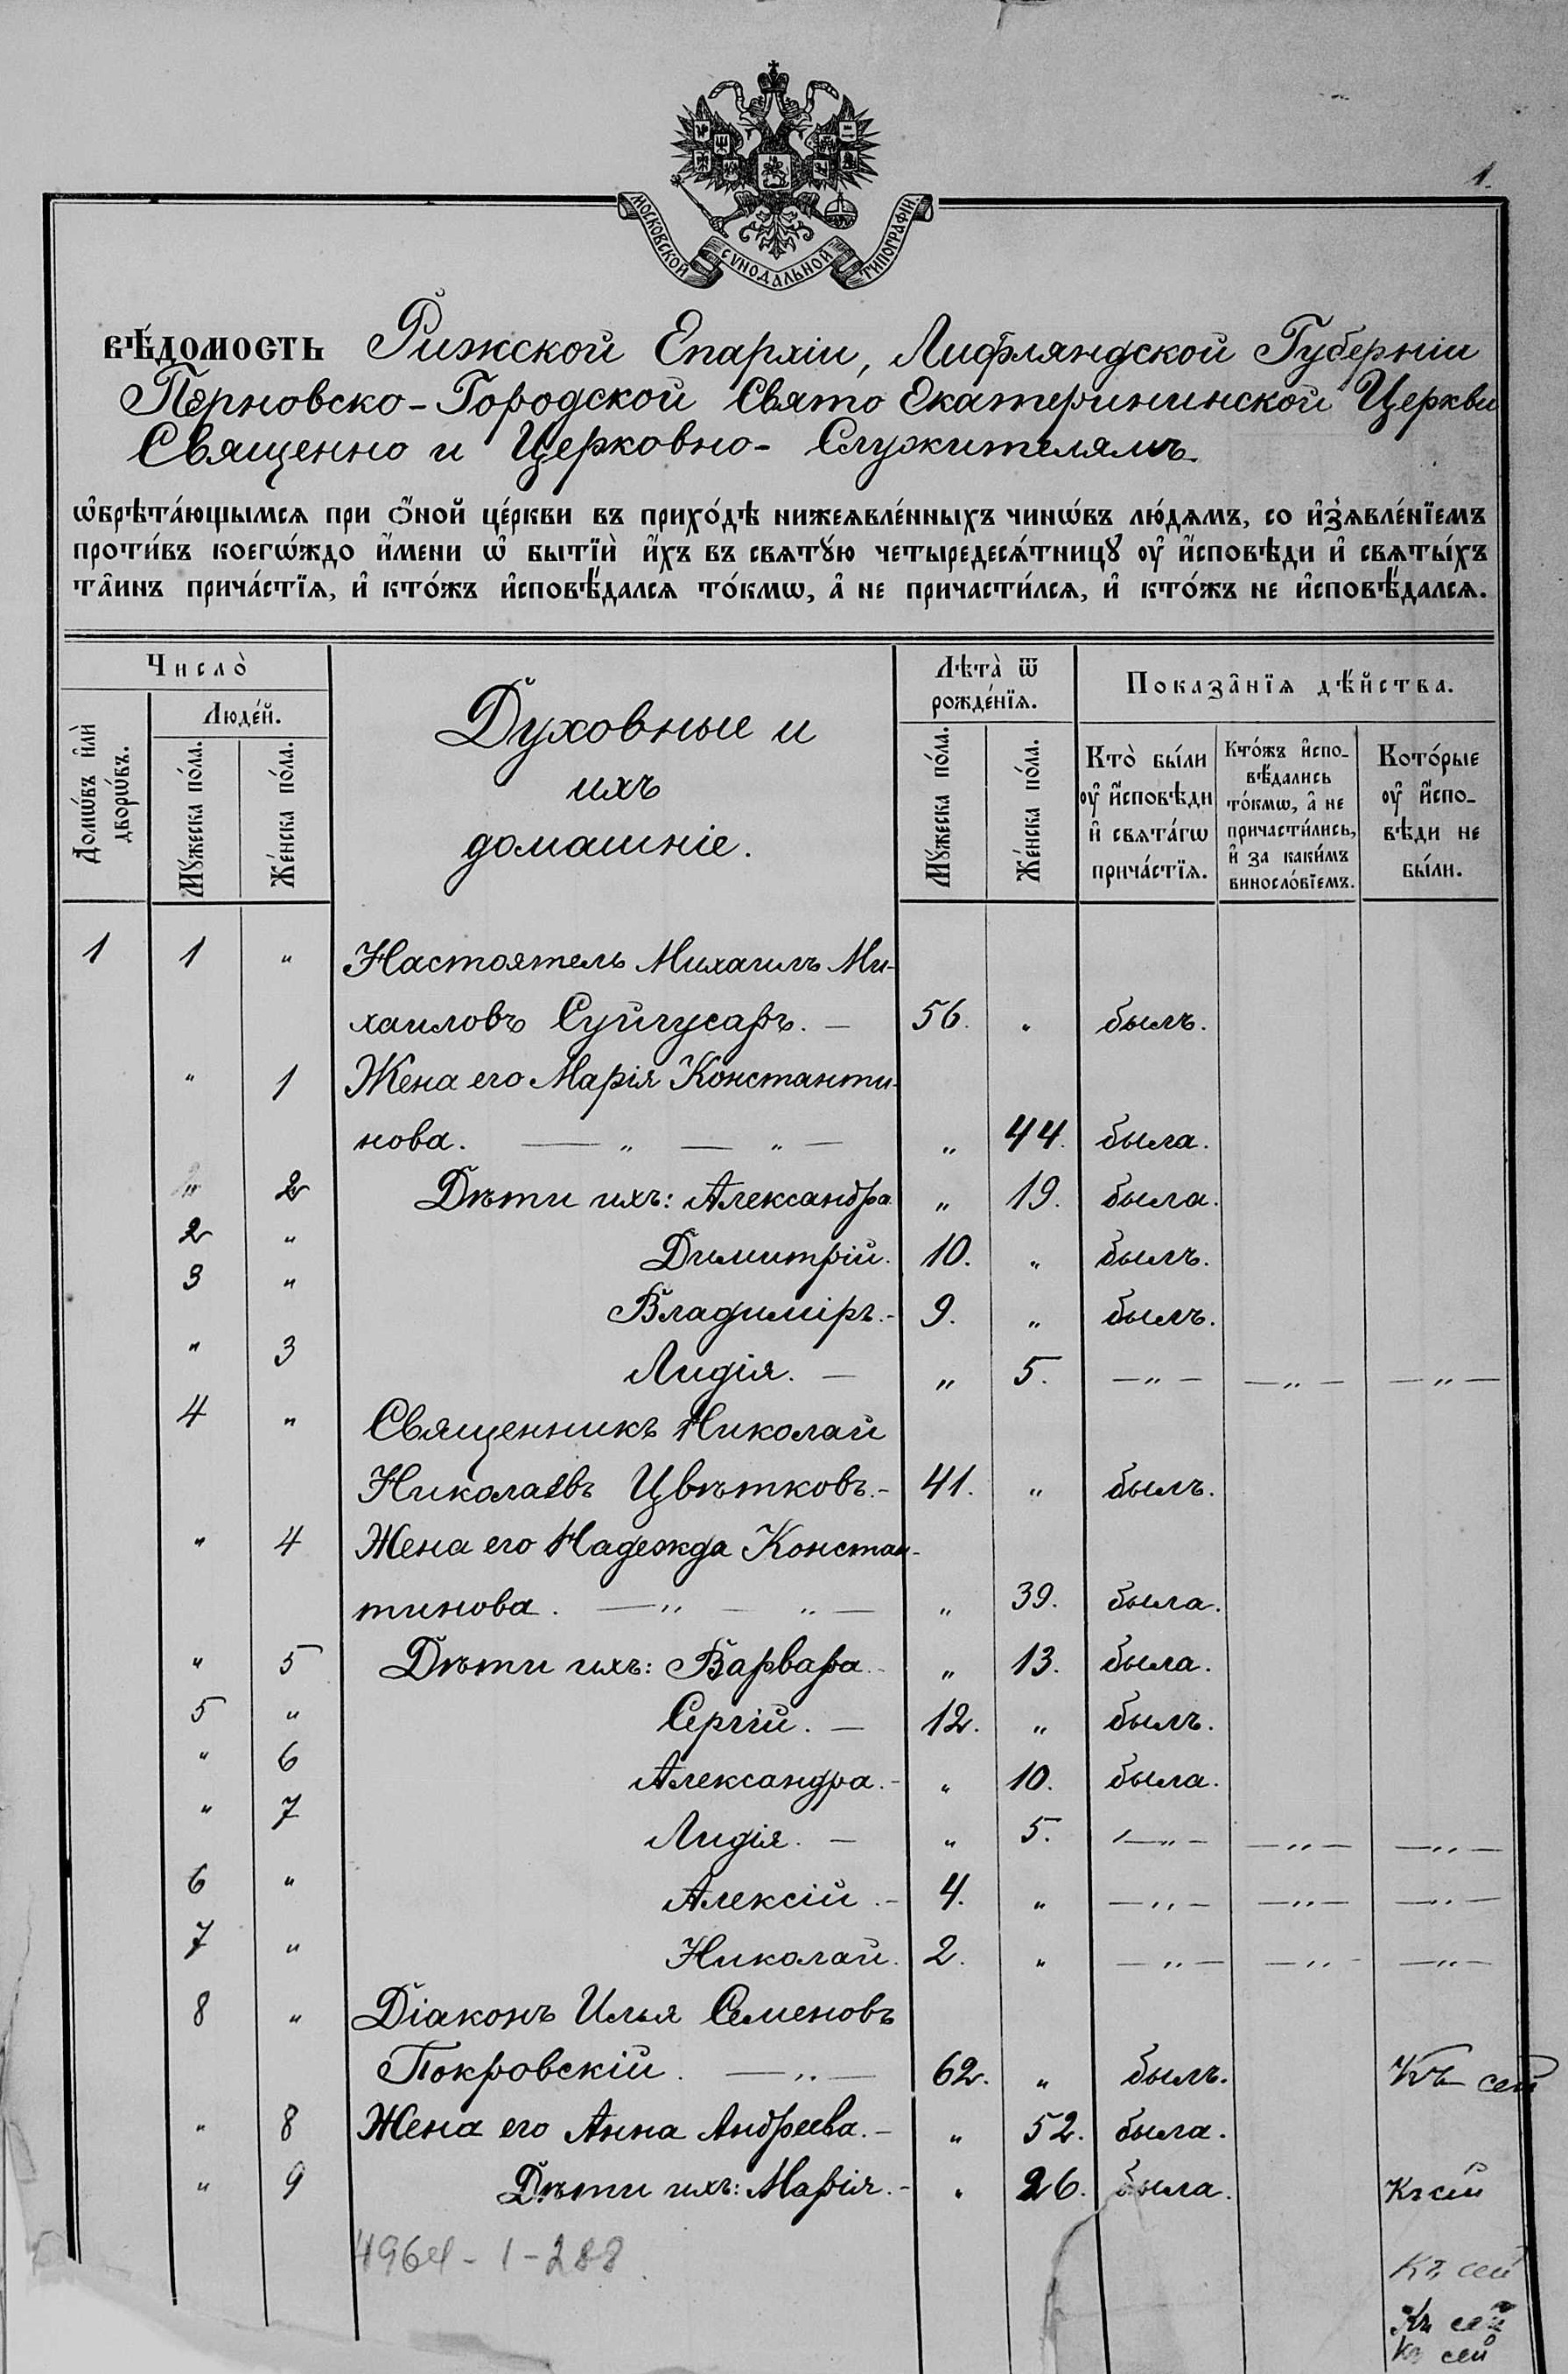 1.
МОСКОВСКОЙ СѴНОДАЛЬНОЙ ТИПОГРАФІИ.
вѣ́домость Рижской Епархіи, Лифляндской Губерніи
Перновско-Городской Свято Екатерининской Церкви
Священно и Церковно- Служителямъ.
ѡ҆брѣта́ющымсѧ при ѻ҆́ной це́ркви въ прихо́дѣ нижеѧвле́нныхъ чинѡ́въ лю́дѧмъ, со и҆зѧвле́нїемъ
проти́въ коегѡ́ждо и҆́мени ѡ҆ бытїѝ и҆́хъ въ свѧтꙋ́ю четыредесѧ́тницꙋ оу҆ и҆сповѣди и҆ свѧты́хъ
та̑инъ прича́стїѧ, и҆ кто́жъ и҆сповѣ́далсѧ то́кмѡ, а҆ не причасти́лсѧ, и҆ кто́жъ не и҆сповѣ́далсѧ.
Число̀
Домѡ́въ и҆лѝ дворѡ́въ.
Люде́й.
Мꙋ́жеска по́ла.
Же́нска по́ла.
Духовные и
ихъ
домашніе.
Лѣта̀ ѿ
рожде́нїѧ.
Мꙋ́жеска по́ла.
Же́нска по́ла.
Показа̑нїѧ дѣ́йства.
Кто̀ бы́ли
оу҆ и҆сповѣди
и҆ свѧта́гѡ
прича́стїѧ.
Кто́жъ и҆спо-
вѣ́дались
то́кмѡ, а҆ не
причасти́лись,
и҆ за каки́мъ
виносло́вїемъ.
Кото́рые
оу҆ и҆спо-
вѣди не
бы́ли.
1 1 " Настоятель Михаилъ Ми-
хаиловъ Суйгусаръ. — 56. " былъ.
" 1 Жена его Марія Константи-
нова. — " — " — " 44. была.
" 2 Дѣти ихъ: Александра " 19. была.
2 " Димитрій. 10. " былъ.
3 " Владиміръ. - 9. " былъ.
" 3 Лидія. — " 5. — " — — " — — " —
4 " Священникъ Николай
Николаевъ Цвѣтковъ. - 41. " былъ.
" 4 Жена его Надежда Констан-
тинова. — " — " — " 39. была.
" 5 Дѣти ихъ: Варвара. - " 13. была.
5 " Сергій. — 12. " былъ.
" 6 Александра. - " 10. была.
" 7 Лидія. — " 5. — " — — " — — " —
6 " Алексій. - 4. " — " — — " — — " —
7 " Николай. 2. " — " — — " — — " —
8 " Діаконъ Илья Семеновъ
Покровскій. — " — 62. " былъ. Къ сей
" 8 Жена его Анна Андреева. - " 52. была.
" 9 Дѣти ихъ: Марія. - " 26. была. Къ сей
4964-1-288
Къ сей
Къ сей
Къ сей